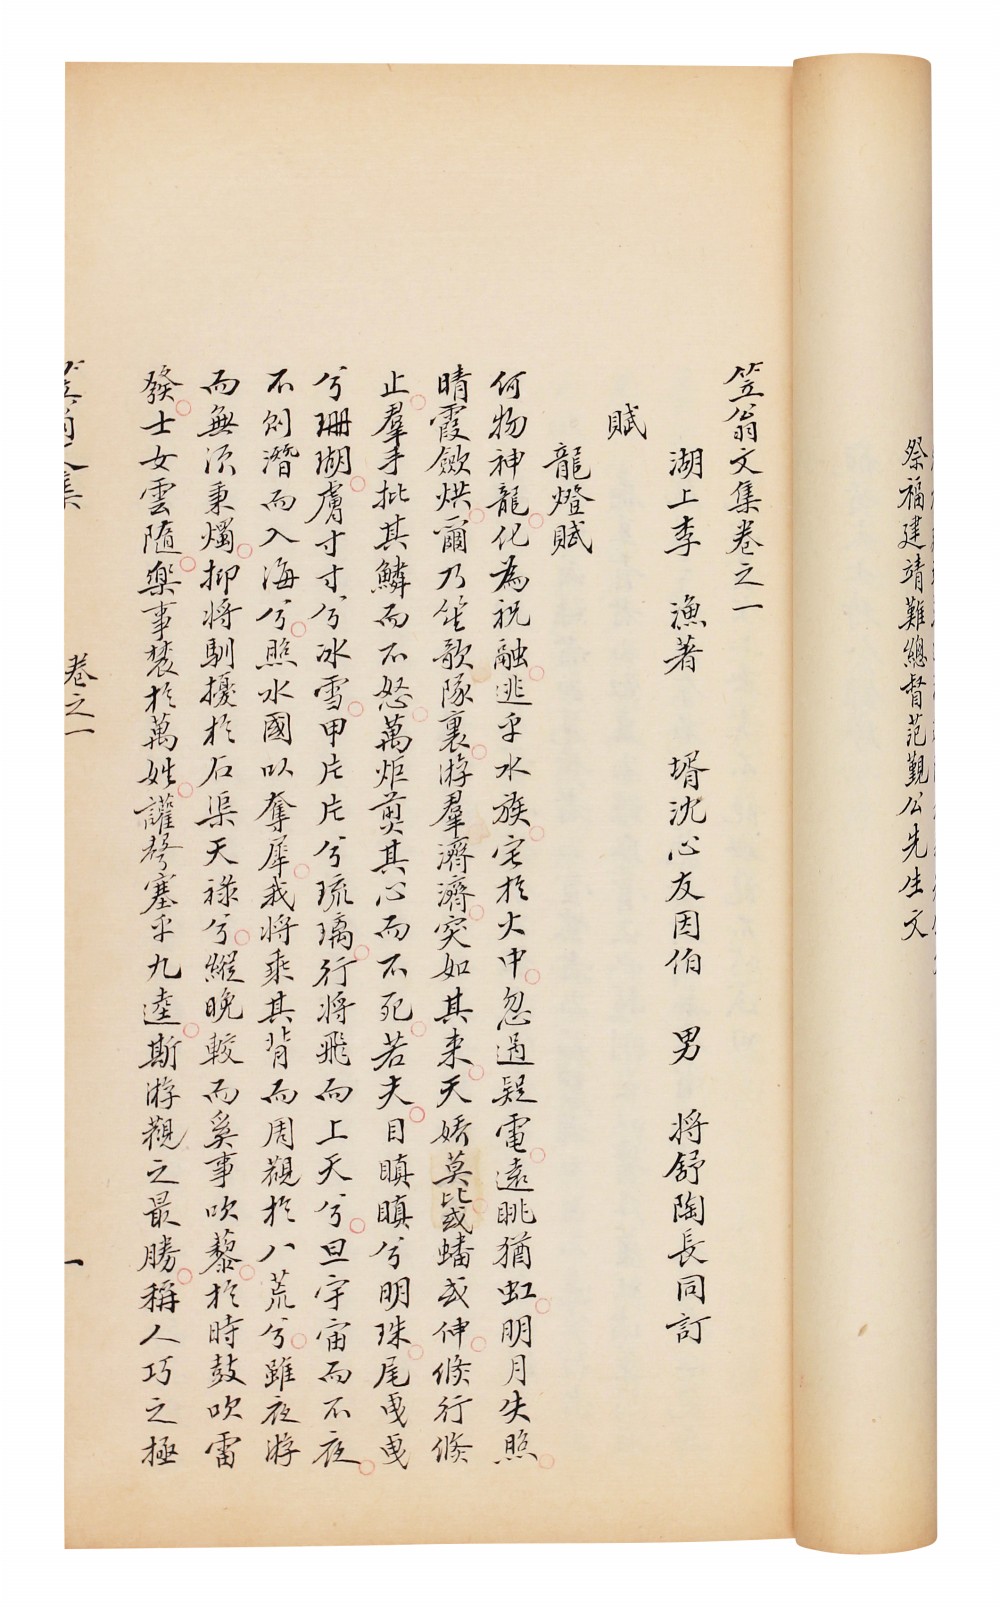 祭福建靖難總督范覲公先生文
笠翁文集卷之一
湖上李 漁著 壻沈心友因伯 男 將舒陶長同訂
賦
龍燈賦
何物神龍化為祝融逃乎水族宅於火中忽過疑電遠眺猶虹明月失照
晴霞斂烘爾乃笙歌隊裏游羣濟濟突如其來天矯莫比或蟠或伸倏行倏
止羣手批其鱗而不怒萬炬煎其心而不死若夫目瞋瞋兮明珠尾曳曳
兮珊瑚膚寸寸兮冰雪甲片片兮琉璃行將飛而上天兮旦宇宙而不夜
不則潛而入海兮照水國以奪犀我將乘其背而周觀於八荒兮雖夜游
而無須秉燭抑將馴擾於石渠天祿兮縱晚較而奚事吹藜於時鼓吹雷
發士女雲隨樂事禁於萬姓讙聲塞乎九逵斯游觀之最勝稱人巧之極
笠翁文集 卷之一 一